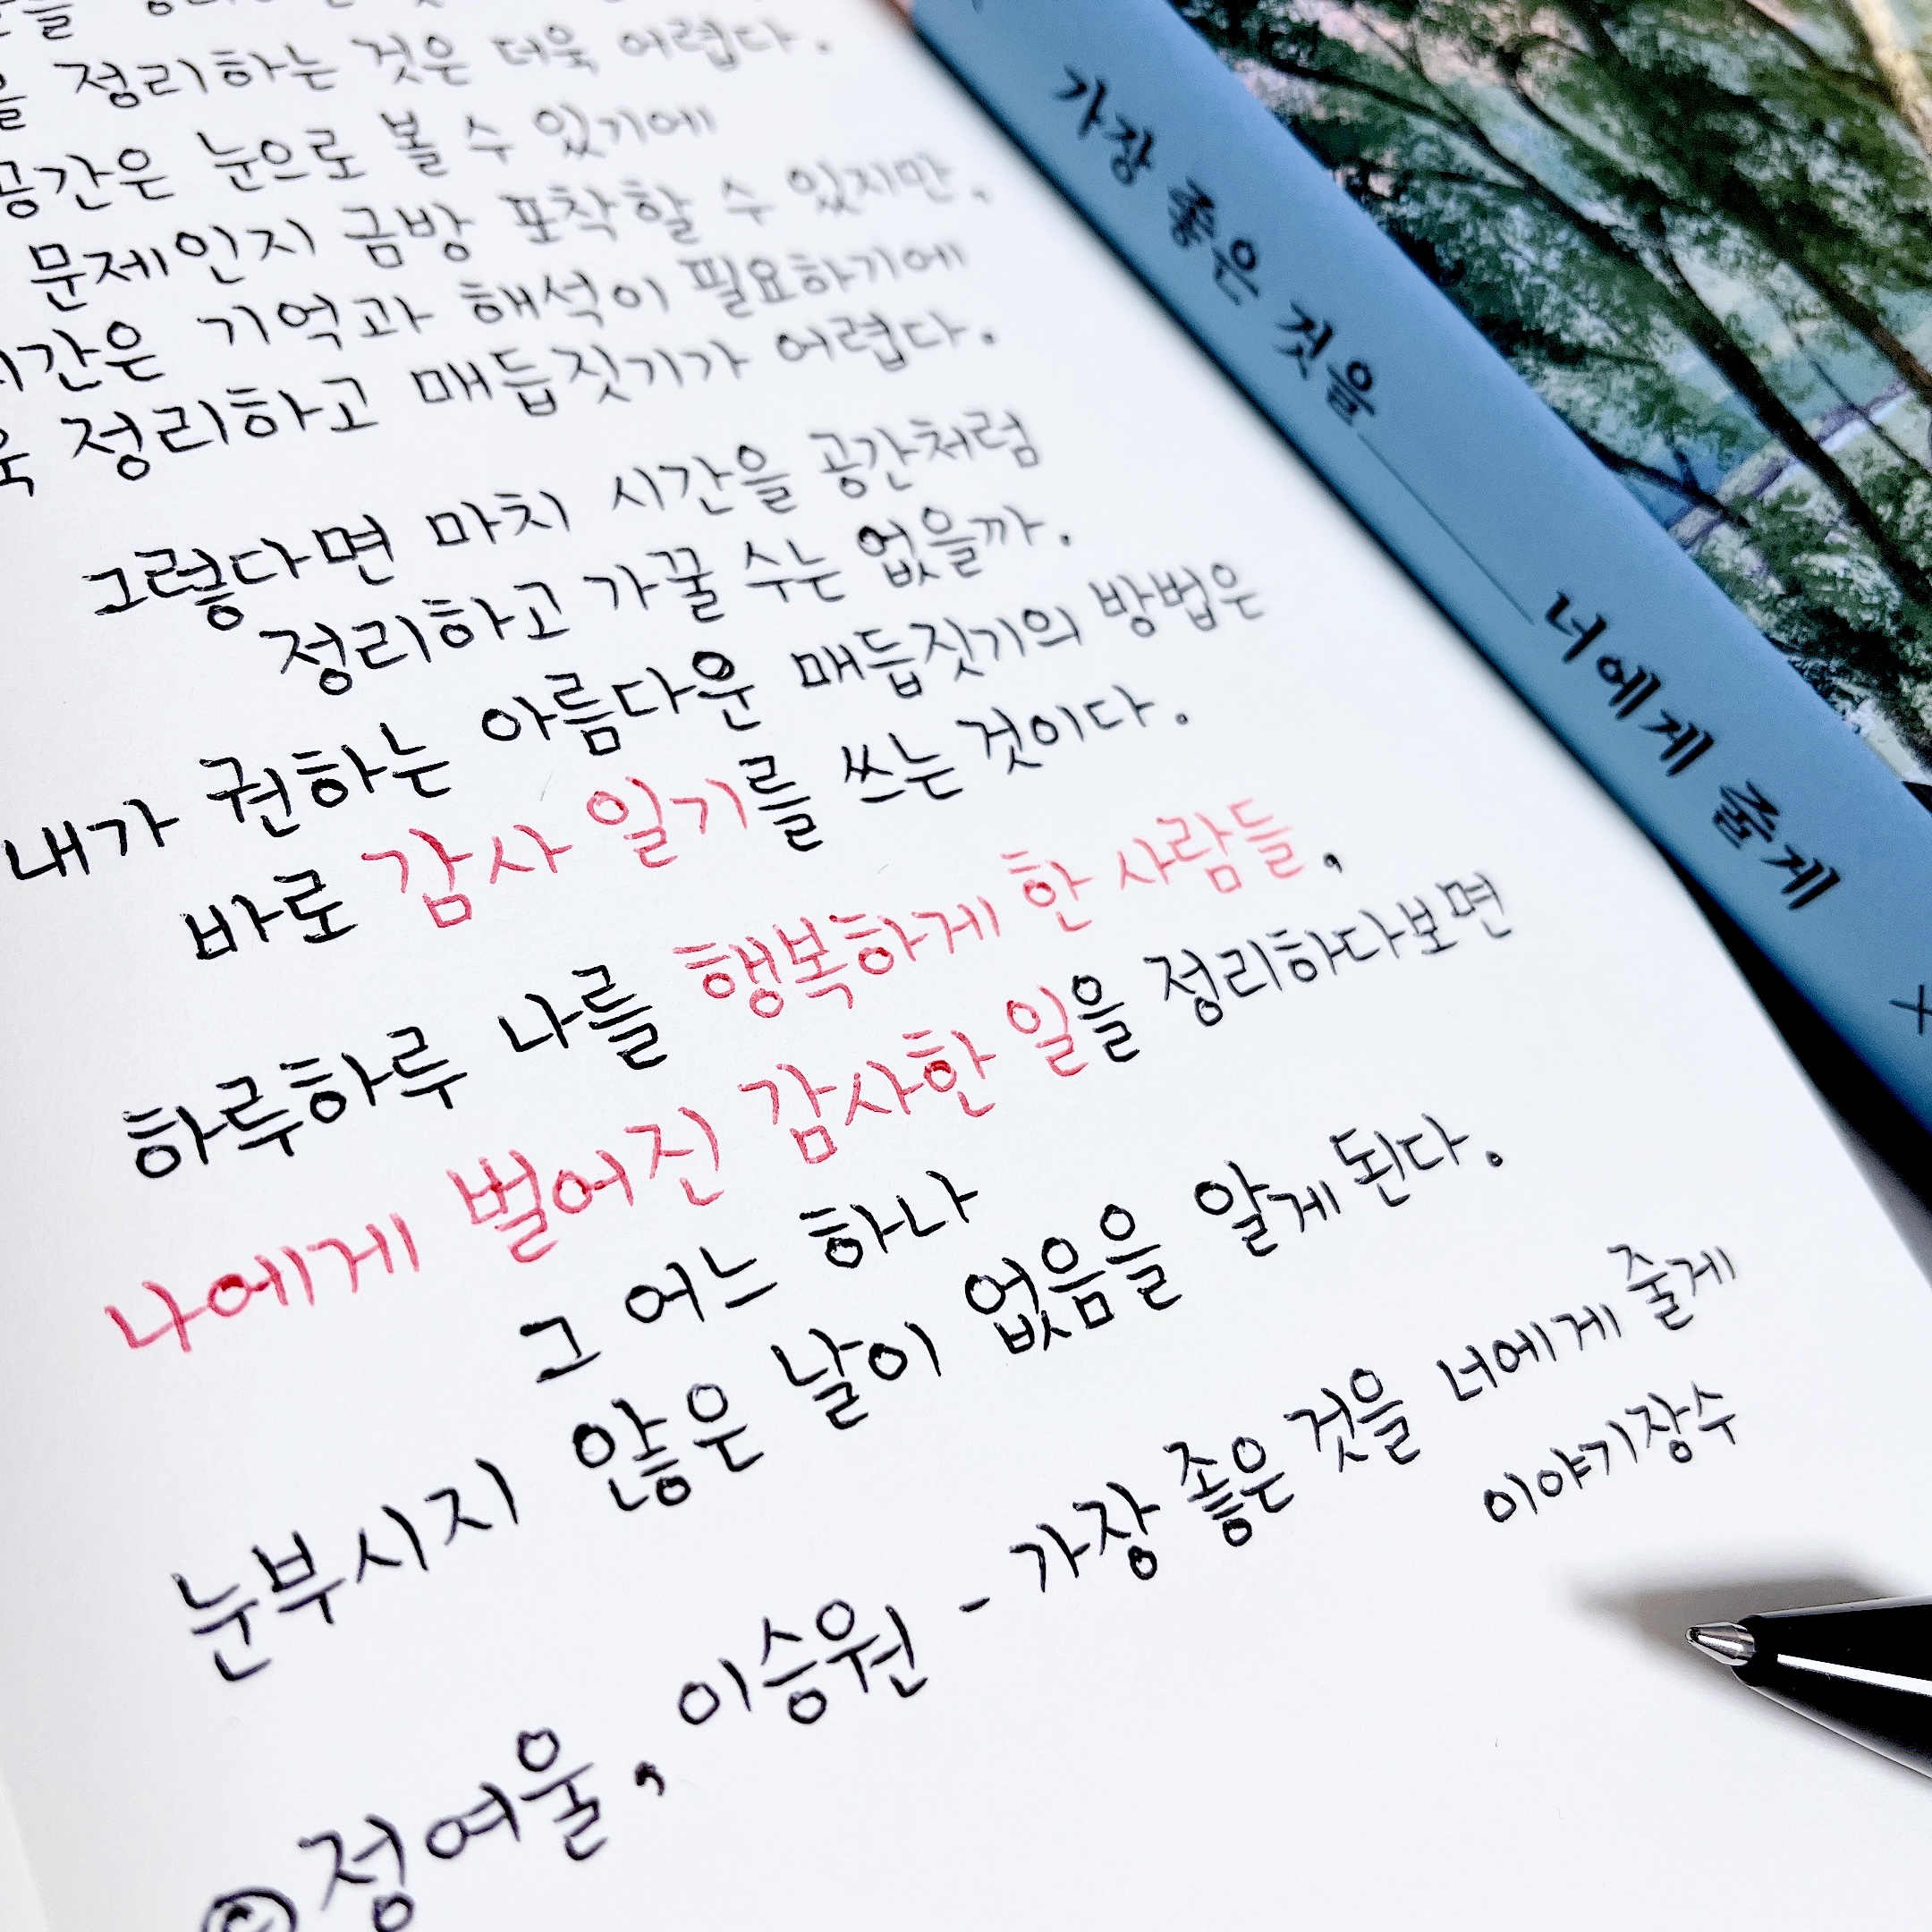 정리하는 것은 더욱 어렵다.
공간은 눈으로 볼 수 있기에
문제인지 금방 포착할 수 있지만,
시간은 기억과 해석이 필요하기에
정리하고 매듭짓기가 어렵다.
그렇다면 마치 시간을 공간처럼
정리하고 가꿀 수는 없을까.
내가 권하는 아름다운 매듭짓기의 방법은
바로 감사 일기를 쓰는 것이다.
하루하루 나를 행복하게 한 사람들,
나에게 벌어진 감사한 일을 정리하다보면
그 어느 하나
눈부시지 않은 날이 없음을 알게 된다.
©정여울, 이승원 - 가장 좋은 것을 너에게 줄게
이야기장수
가장 좋은 것을 너에게 줄게